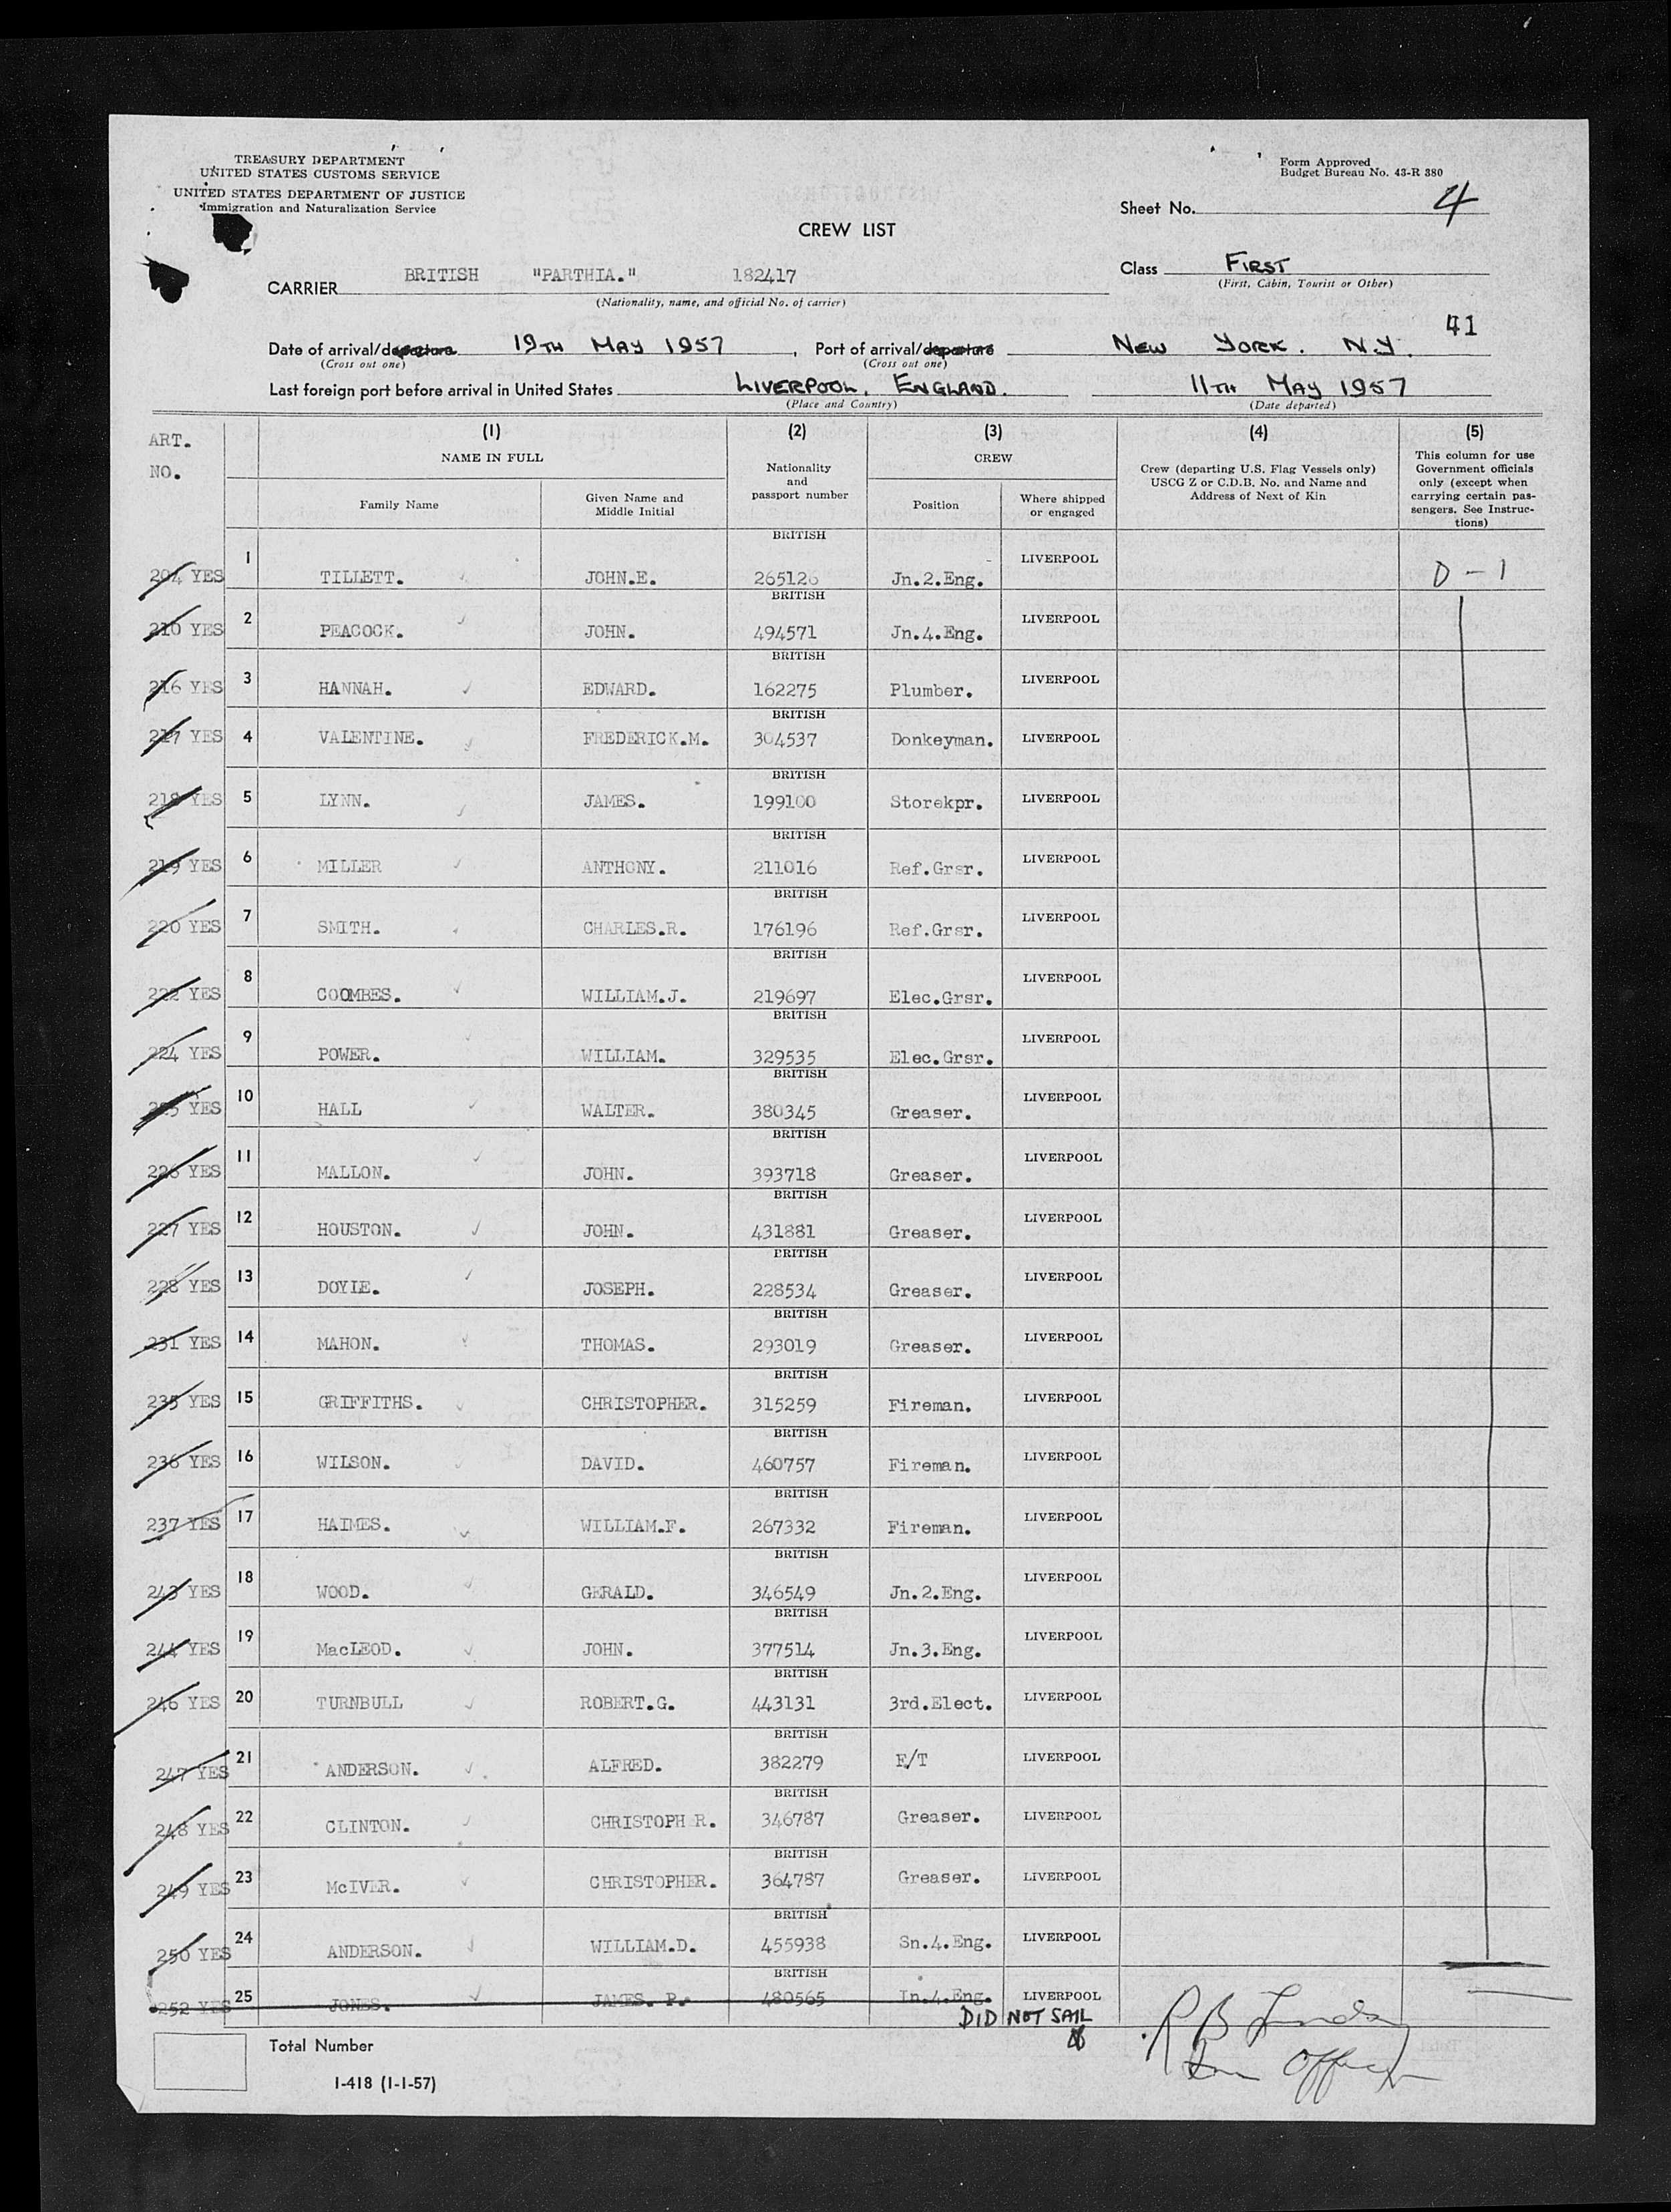 TREASURY DEPARTMENT
UNITED STATES CUSTOMS SERVICE
UNITED STATES DEPARTMENT OF JUSTICE
Immigration and Naturalization Service
Form Approved
Budget Bureau No. 43-R 380
Sheet No. 4
CREW LIST
Class FIRST
(First, Cabin, Tourist or Other)
CARRIER BRITISH "PARTHIA." 182417
(Nationality, name, and official No. of carrier)
41
Date of arrival/departure 19TH MAY 1957, Port of arrival/departure NEW YORK. N.Y.
(Cross out one) (Cross out one)
Last foreign port before arrival in United States LIVERPOOL, ENGLAND. 11TH MAY 1957
(Place and Country) (Date departed)
ART. NO.
(1) NAME IN FULL
Family Name
Given Name and Middle Initial
(2) Nationality and passport number
(3) CREW
Position
Where shipped or engaged
(4) Crew (departing U.S. Flag Vessels only) USCG Z or C.D.B. No. and Name and Address of Next of Kin
(5) This column for use Government officials only (except when carrying certain passengers. See Instructions)
204 YES 1 TILLETT. JOHN.E. BRITISH 265126 Jn.2.Eng. LIVERPOOL D - 1
210 YES 2 PEACOCK. JOHN. BRITISH 494571 Jn.4.Eng. LIVERPOOL
216 YES 3 HANNAH. EDWARD. BRITISH 162275 Plumber. LIVERPOOL
217 YES 4 VALENTINE. FREDERICK.M. BRITISH 304537 Donkeyman. LIVERPOOL
218 YES 5 LYNN. JAMES. BRITISH 199100 Storekpr. LIVERPOOL
219 YES 6 MILLER ANTHONY. BRITISH 211016 Ref.Grsr. LIVERPOOL
220 YES 7 SMITH. CHARLES.R. BRITISH 176196 Ref.Grsr. LIVERPOOL
222 YES 8 COOMBES. WILLIAM.J. BRITISH 219697 Elec.Grsr. LIVERPOOL
224 YES 9 POWER. WILLIAM. BRITISH 329535 Elec.Grsr. LIVERPOOL
225 YES 10 HALL WALTER. BRITISH 380345 Greaser. LIVERPOOL
226 YES 11 MALLON. JOHN. BRITISH 393718 Greaser. LIVERPOOL
227 YES 12 HOUSTON. JOHN. BRITISH 431881 Greaser. LIVERPOOL
228 YES 13 DOYLE. JOSEPH. BRITISH 228534 Greaser. LIVERPOOL
231 YES 14 MAHON. THOMAS. BRITISH 293019 Greaser. LIVERPOOL
235 YES 15 GRIFFITHS. CHRISTOPHER. BRITISH 315259 Fireman. LIVERPOOL
236 YES 16 WILSON. DAVID. BRITISH 460757 Fireman. LIVERPOOL
237 YES 17 HAIMES. WILLIAM.F. BRITISH 267332 Fireman. LIVERPOOL
243 YES 18 WOOD. GERALD. BRITISH 346549 Jn.2.Eng. LIVERPOOL
244 YES 19 MacLEOD. JOHN. BRITISH 377514 Jn.3.Eng. LIVERPOOL
246 YES 20 TURNBULL ROBERT.G. BRITISH 443131 3rd.Elect. LIVERPOOL
247 YES 21 ANDERSON. ALFRED. BRITISH 382279 E/T LIVERPOOL
248 YES 22 CLINTON. CHRISTOPH R. BRITISH 346787 Greaser. LIVERPOOL
249 YES 23 McIVER. CHRISTOPHER. BRITISH 364787 Greaser. LIVERPOOL
250 YES 24 ANDERSON. WILLIAM.D. BRITISH 455938 Sn.4.Eng. LIVERPOOL
252 YES 25 JONES. JAMES. P. BRITISH 480565 Jn.4.Eng. LIVERPOOL
DID NOT SAIL
R B
Officer
Total Number
I-418 (1-1-57)